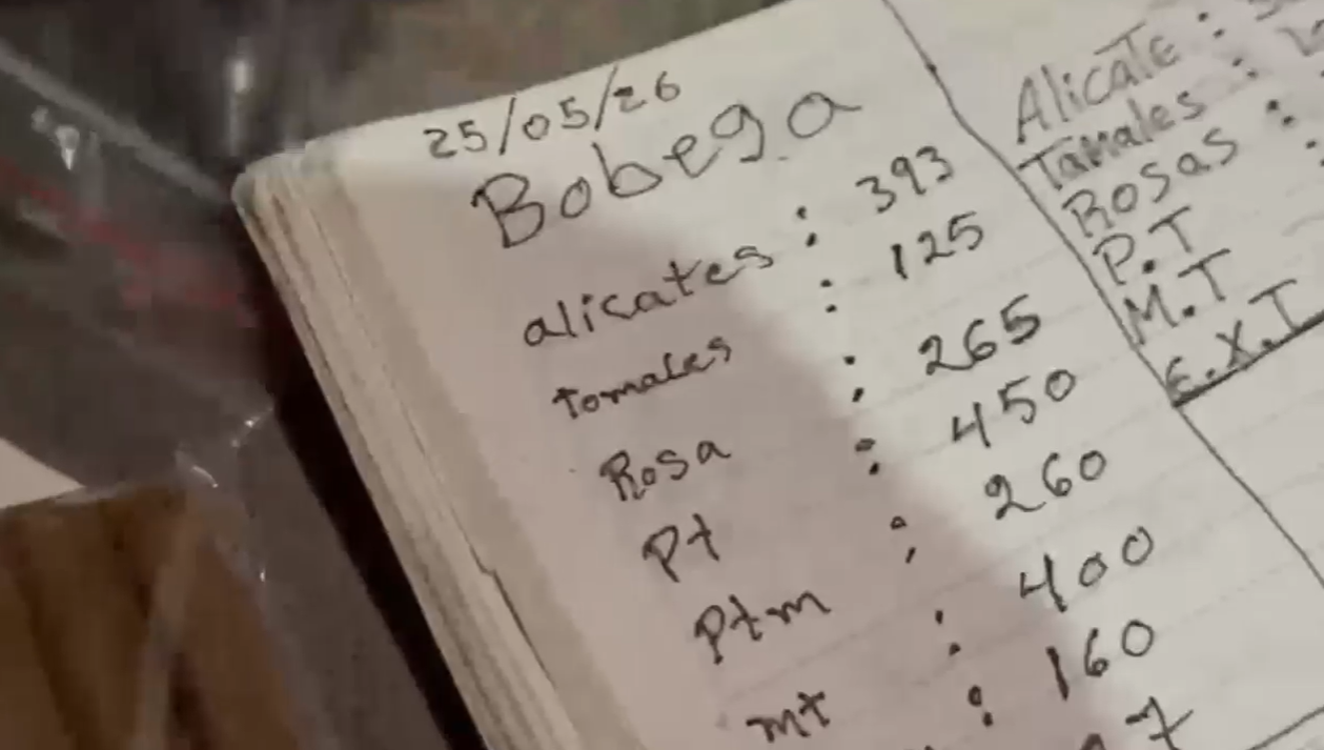 25/05/26
Bobega
alicates : 393
tomales : 125
Rosa : 265
Pt : 450
Ptm : 260
mt : 400
: 160
7
Alicate :
Tamales :
Rosas :
P.T :
M.T
E.X.T